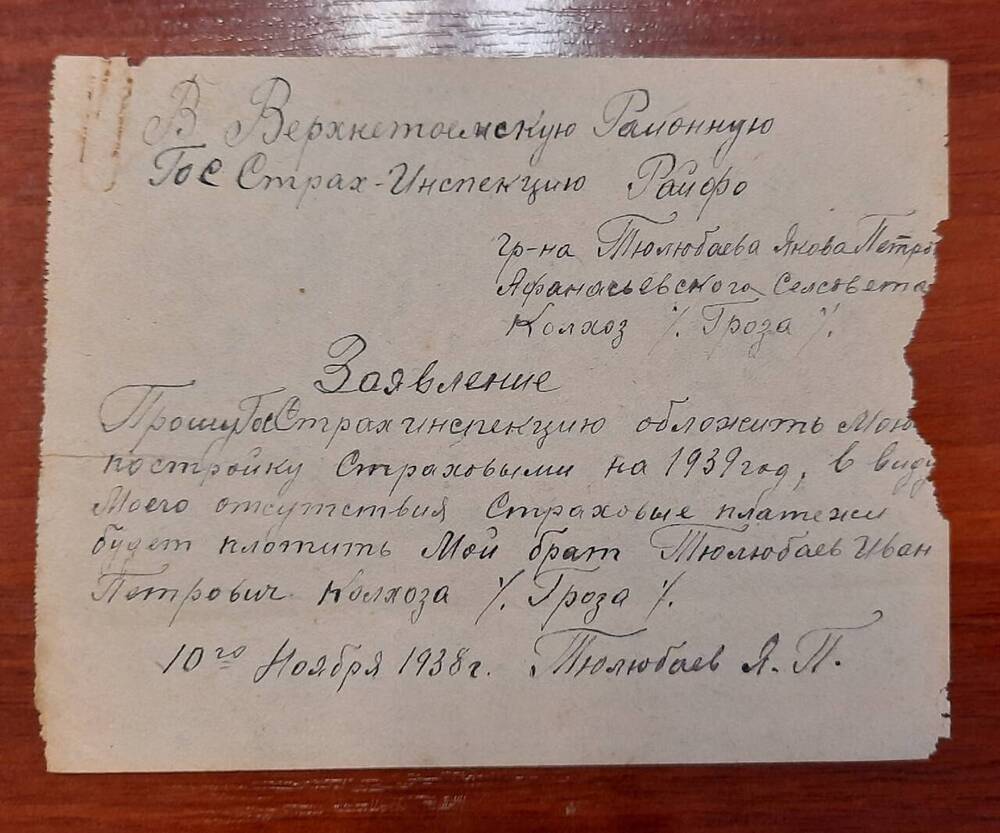 В Верхнетоемскую Районную
Гос Страх-Инспекцию Райфо
гр-на Тюлюбаева Якова Петро
Афанасьевского Селсовета
Колхоз ./. Гроза ./.
Заявление
Прошу Гос Страх инспекцию обложить Мою
постройку Страховыми на 1939 год, в виду
Моего отсутствия Страховые платежи
будет плотить Мой брат Тюлюбаев Иван
Петрович Колхоза ./. Гроза ./.
10го Ноября 1938 г. Тюлюбаев Я. П.